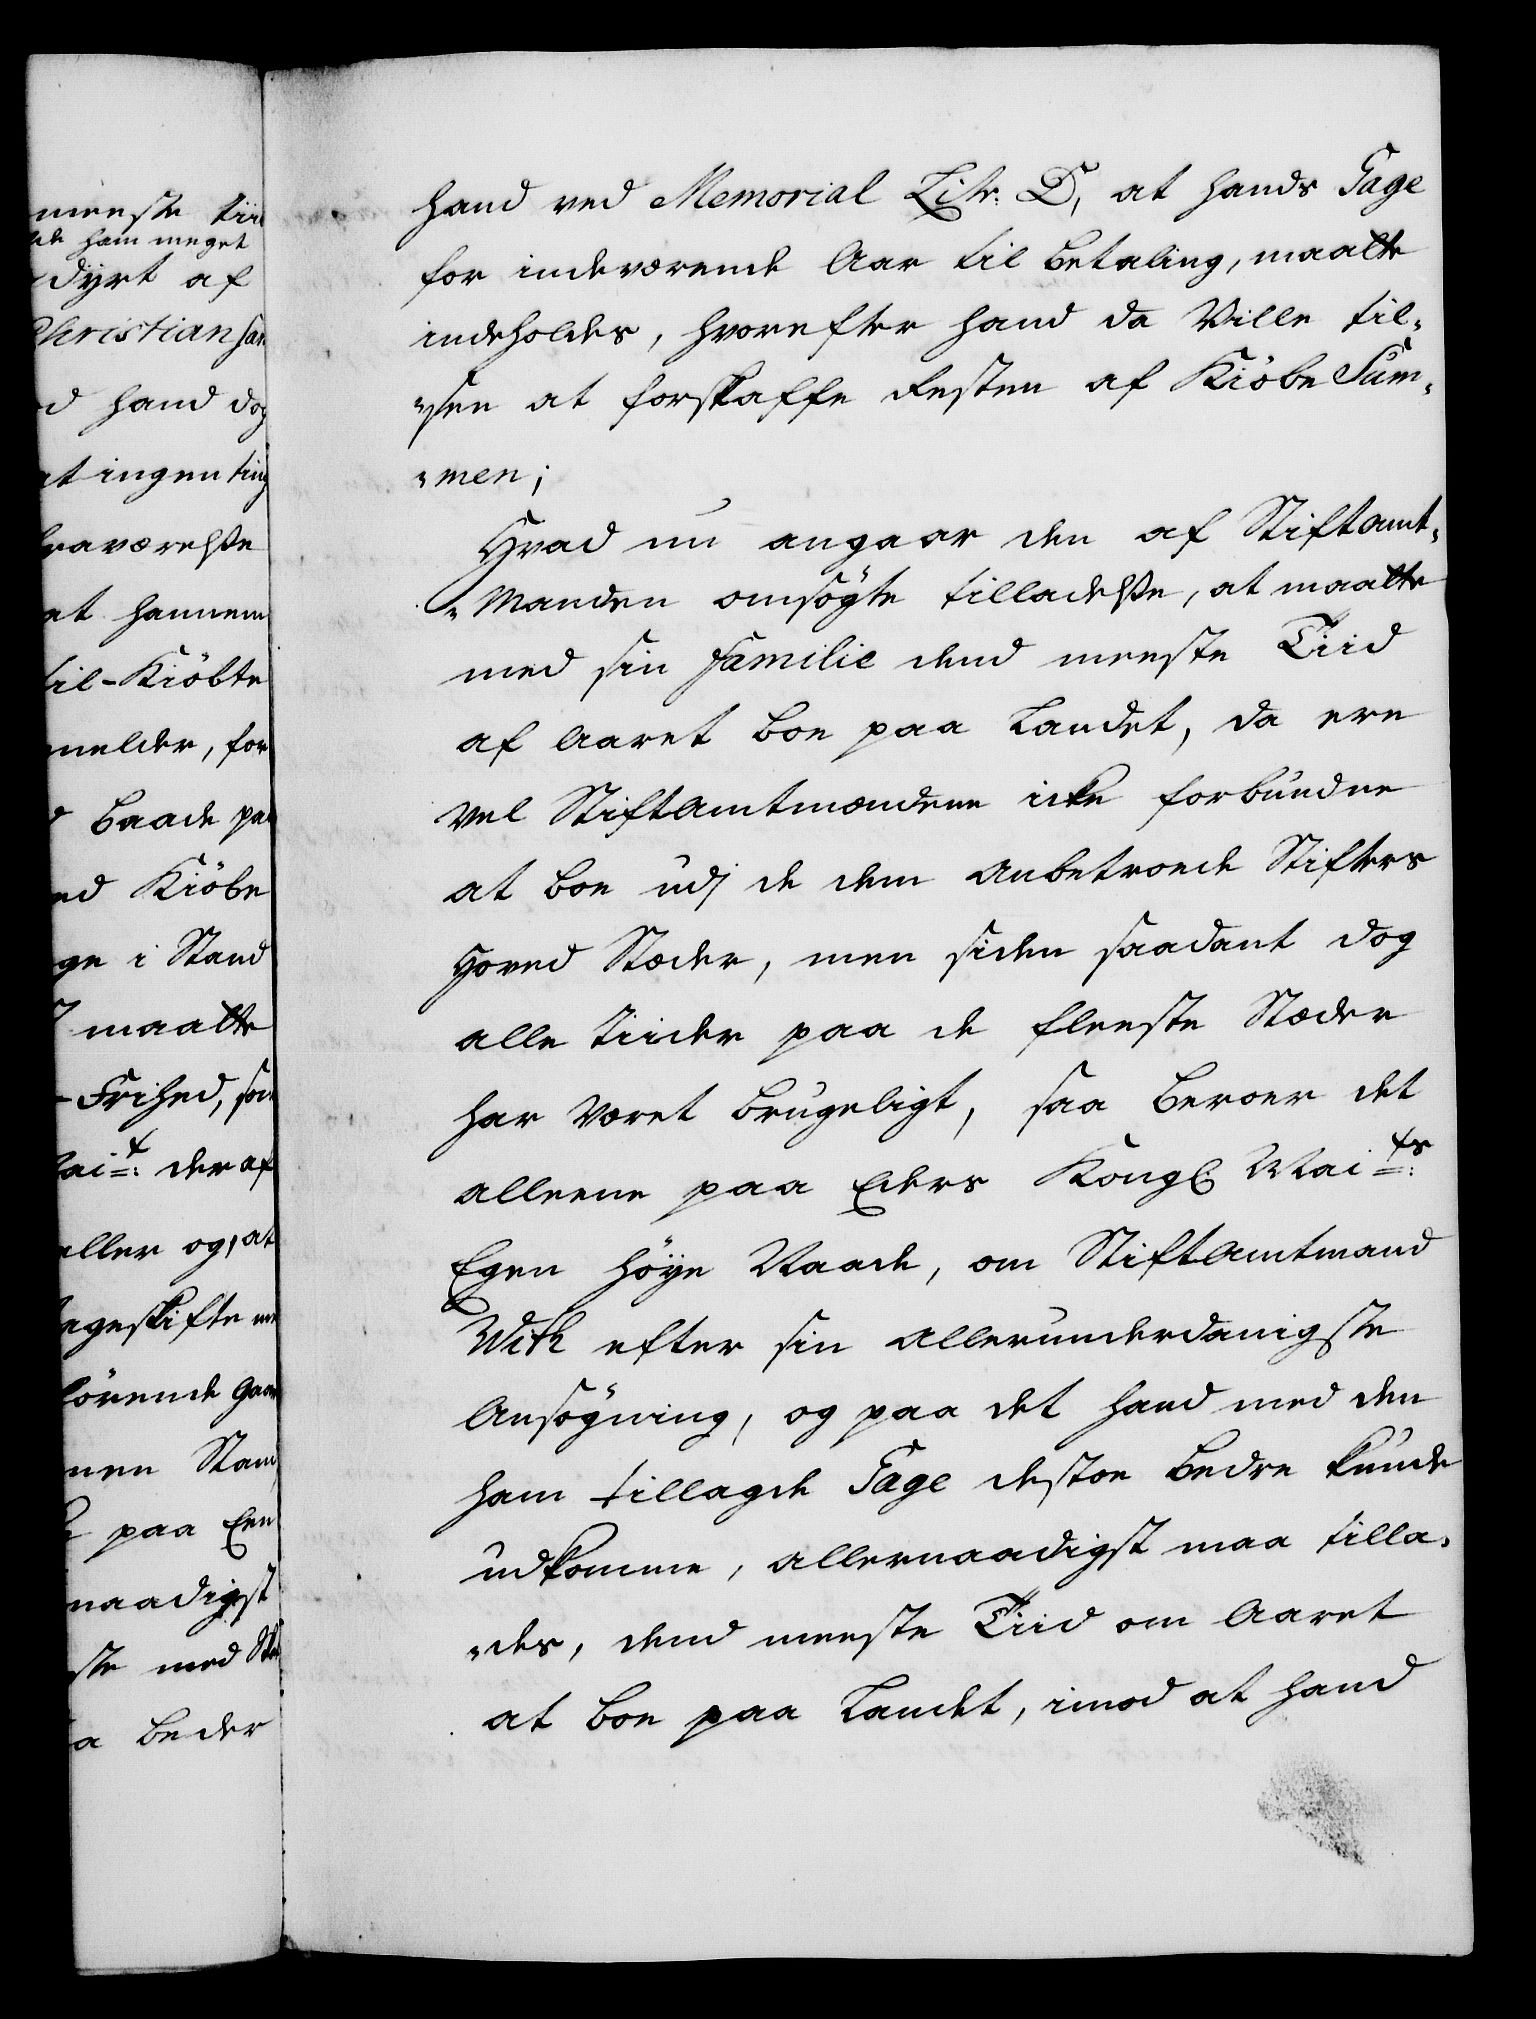 meeste tii
de ham meget
dyrt af
Christian san
d hand dog
at ingen ting
raværelße
at hannem
til-Kiöbte
melder, for
d baade paa
ed Kiöbe
ge i Stand
maatte
Frihed, som
Mai<u>t</u>: deraf
eller og, at
ageskifte me
hörende Gaar
nen Stam
paa Een
naadigst
ste med
a beder
hand ved Memorial Litr: D, at hands Gage
for indeværende Aar til betaling, maatte
indeholdes, hvorefter hand da Ville til-
"see at forskaffe Resten af KiöbeSum-
"men;
Hvad nu angaar den af Stiftamt-
"Manden omsögte tilladelße, at maatte
med sin Familie dend meeste Tiid
af Aaret boe paa Landet, da ere
vel Stiftamtmændene icke forbundne
at boe udj de dem anbetroede Stifters
Hoved Stæder, men siden saadant dog
alle Tiider paa de fleeste Stæder
har været brugeligt, saa beroer det
alleene paa Eders Kongl Mai<u>ts</u>:
Egen höye Naade, om Stiftamtmand
With efter sin allerunderdanigste
Ansögning, og paa det hand med den
ham tillagde Gage destoe bedre kunde
udkomme, allernaadigst maa tilla-
"des, dend meeste Tiid om Aaret
at boe paa Landet, imod at hand